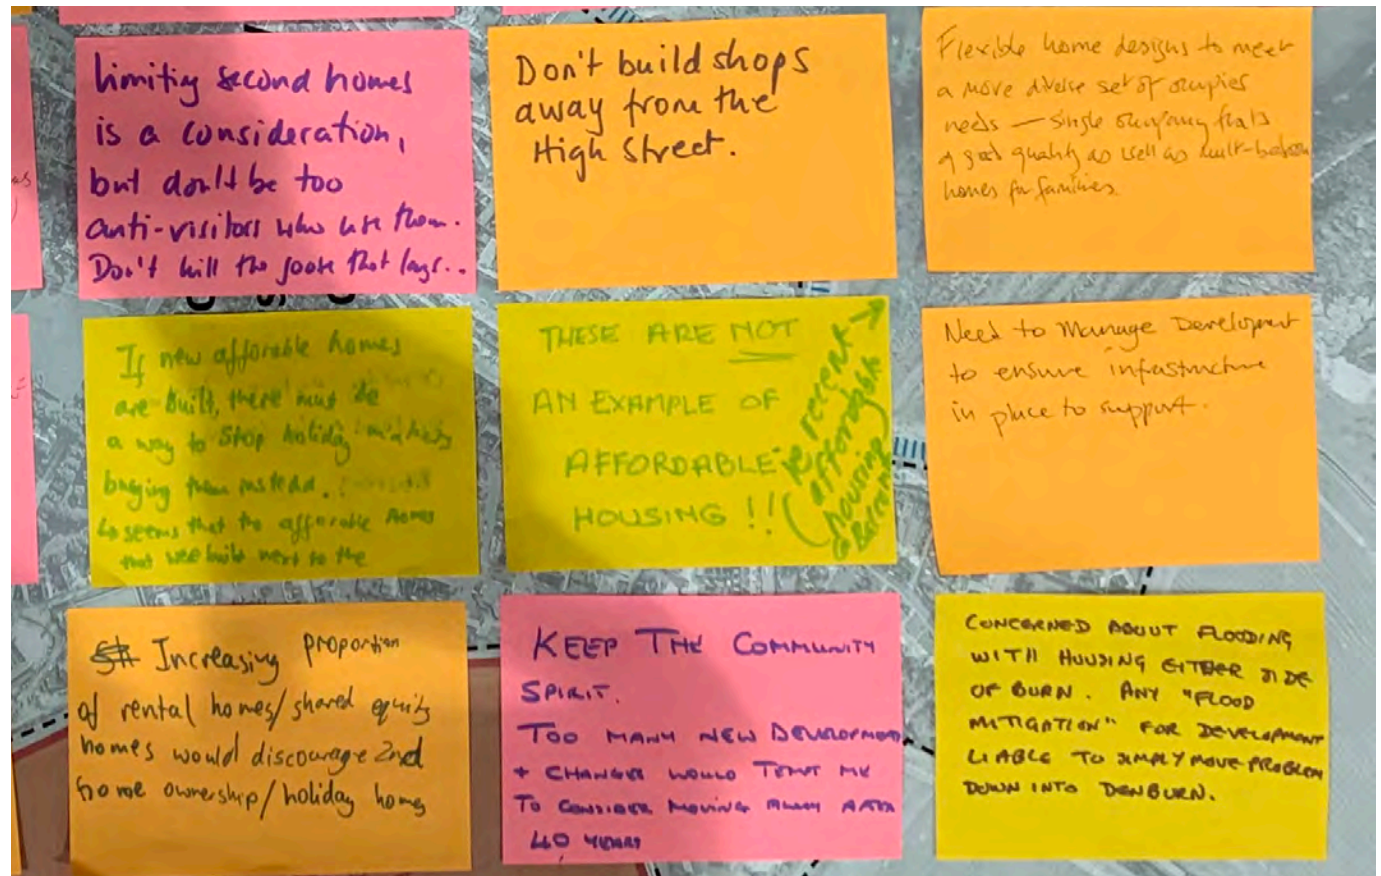 Limiting second homes
is a consideration,
but don't be too
anti-visitors who use them.
Don't kill the goose that lays..
Don't build shops
away from the
High Street.
Flexible home designs to meet
a more diverse set of occupies
needs — single occupancy flats
of good quality as well as mult-bedroom
homes for families.
If new afforable homes
are built, there must be
a way to stop holiday
buying them instead.
seems that the afforable homes
that wee built next to the
THESE ARE NOT
AN EXAMPLE OF
AFFORDABLE
HOUSING !!
recent
affordable
housing
Need to Manage Development
to ensure infrastructure
in place to support.
Increasing proportion
of rental homes/shared equity
homes would discourage 2nd
home ownership/holiday homes
KEEP THE COMMUNITY
SPIRIT.
TOO MANY NEW DEVELOPMENTS
+ CHANGES WOULD TEMPT ME
TO CONSIDER MOVING AWAY AFTER
40 YEARS
CONCERNED ABOUT FLOODING
WITH HOUSING EITHER SIDE
OF BURN. ANY "FLOOD
MITIGATION" FOR DEVELOPMENT
LIABLE TO SIMPLY MOVE PROBLEM
DOWN INTO DENBURN.